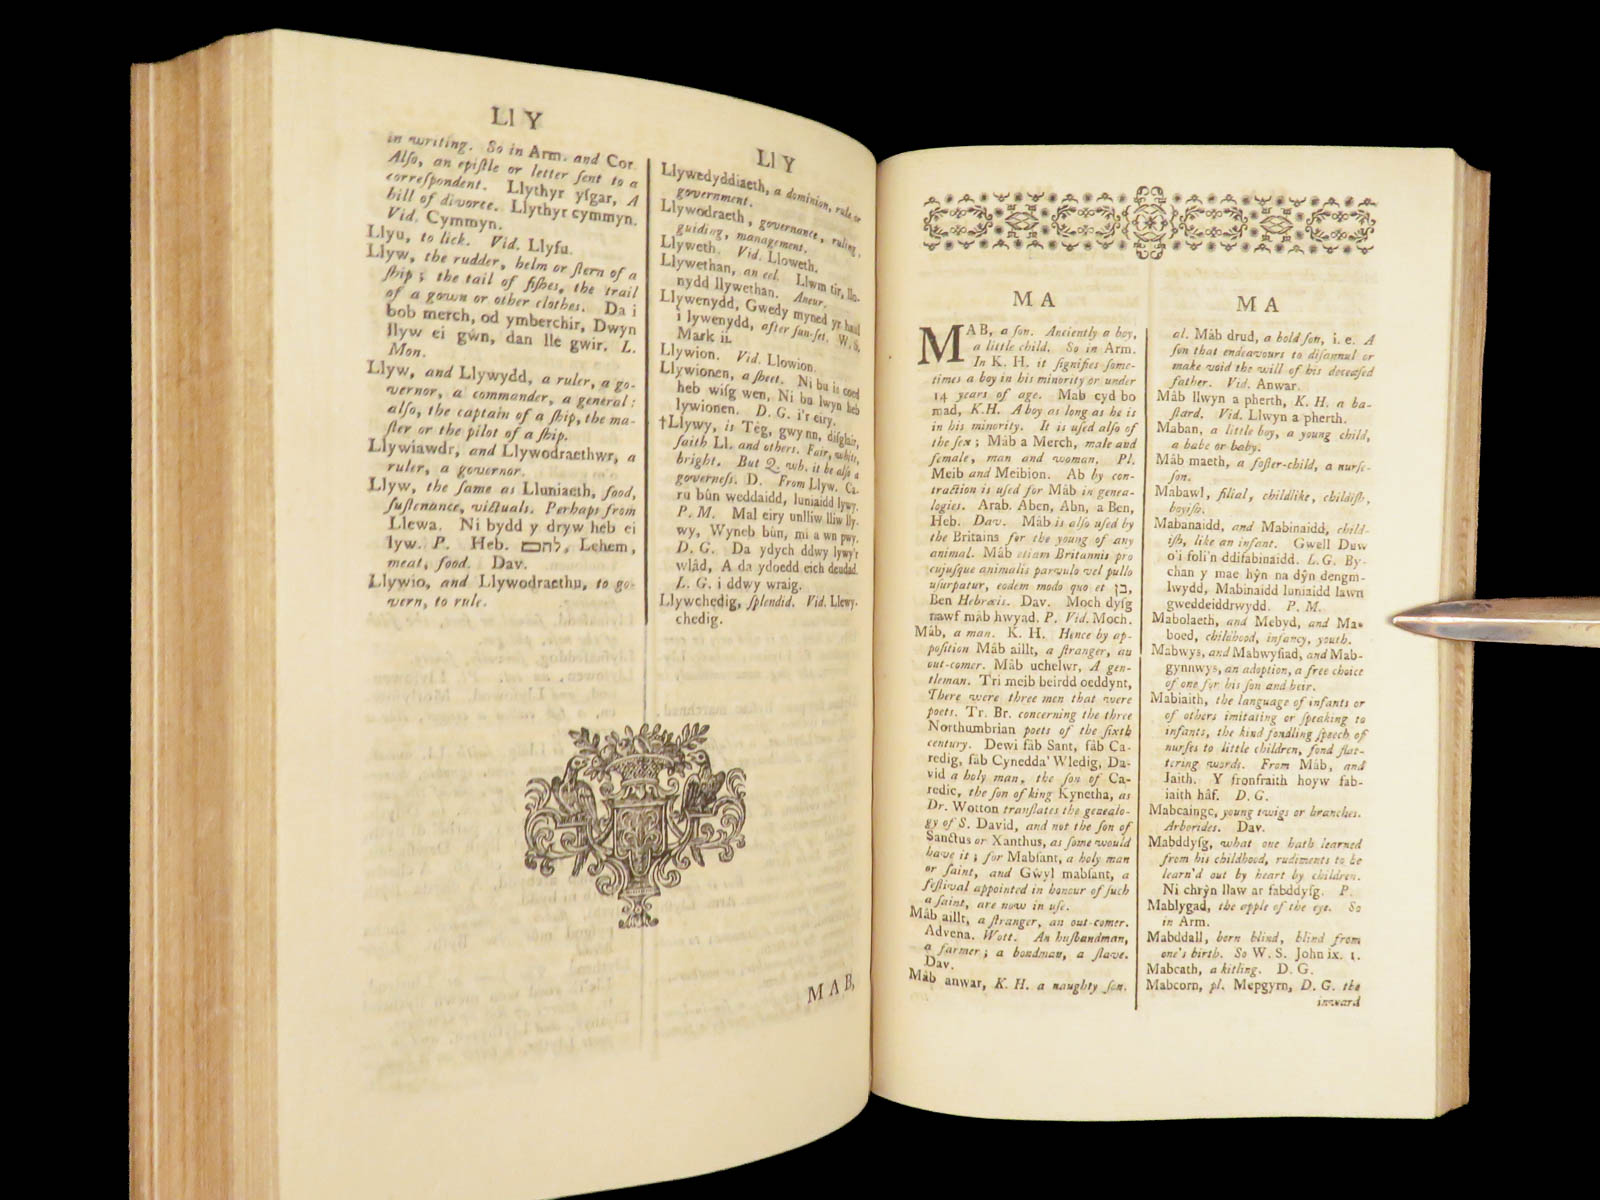 Ll Y
in writing. So in Arm. and Cor.
Alſo, an epiſtle or letter ſent to a
correſpondent. Llythyr yſgar, A
bill of divorce. Llythyr cymmyn.
Vid. Cymmyn.
Llyu, to lick. Vid. Llyfu.
Llyw, the rudder, helm or ſtern of a
ſhip; the tail of fiſhes, the trail
of a gown or other clothes. Da i
bob merch, od ymberchir, Dwyn
llyw ei gŵn, dan lle gwir. L.
Mon.
Llyw, and Llywydd, a ruler, a go-
vernor, a commander, a general:
alſo, the captain of a ſhip, the ma-
ſter or the pilot of a ſhip.
Llywiawdr, and Llywodraethwr, a
ruler, a governor.
Llyw, the ſame as Lluniaeth, food,
ſuſtenance, victuals. Perhaps from
Llewa. Ni bydd y dryw heb ei
lyw. P. Heb. לחם, Lehem,
meat, food. Dav.
Llywio, and Llywodraethu, to go-
vern, to rule.
Ll Y
Llywedyddiaeth, a dominion, rule or
government.
Llywodraeth, governance, ruling,
guiding, management.
Llyweth. Vid. Lloweth.
Llywethan, an eel. Llwm tir, llo-
nydd llywethan. Aneur.
Llywenydd, Gwedy myned yr haul
i lywenydd, after ſun-ſet. W. S.
Mark ii.
Llywion. Vid. Llowion.
Llywionen, a ſheet. Ni bu is coed
heb wiſg wen, Ni bu lwyn heb
lywionen. D. G. i'r eiry.
†Llywy, is Têg, gwynn, diſglair,
ſaith Ll. and others. Fair, white,
bright. But Q. wh. it be alſo a
governeſs. D. From Llyw. Ca-
ru bûn weddaidd, luniaidd lywy.
P. M. Mal eiry unlliw lliw lly-
wy, Wyneb bûn, mi a wn pwy.
D. G. Da ydych ddwy lywy'r
wlâd, A da ydoedd eich deudad.
L. G. i ddwy wraig.
Llywchedig, ſplendid. Vid. Llewy-
chedig.
MAB,
M A
MAB, a ſon. Anciently a boy,
a little child. So in Arm.
In K. H. it ſignifies ſome-
times a boy in his minority or under
14 years of age. Mab cyd bo
mad, K.H. A boy as long as he is
in his minority. It is uſed alſo of
the ſex; Mâb a Merch, male and
female, man and woman. Pl.
Meib and Meibion. Ab by con-
traction is uſed for Mâb in genea-
logies. Arab. Aben, Abn, a Ben,
Heb. Dav. Mâb is alſo uſed by
the Britains for the young of any
animal. Mâb etiam Britannis pro
cujuſque animalis parvulo vel pullo
uſurpatur, eodem modo quo et בן,
Ben Hebræis. Dav. Moch dyſg
nawf mâb hwyad. P. Vid. Moch.
Mâb, a man. K. H. Hence by ap-
poſition Mâb aillt, a ſtranger, an
out-comer. Mâb uchelwr, A gen-
tleman. Tri meib beirdd oeddynt,
There were three men that were
poets. Tr. Br. concerning the three
Northumbrian poets of the ſixth
century. Dewi fâb Sant, fâb Ca-
redig, fâb Cynedda' Wledig, Da-
vid a holy man, the ſon of Ca-
redic, the ſon of king Kynetha, as
Dr. Wotton tranſlates the genealo-
gy of S. David, and not the ſon of
Sanctus or Xanthus, as ſome would
have it; for Mabſant, a holy man
or ſaint, and Gŵyl mabſant, a
feſtival appointed in honour of ſuch
a ſaint, are now in uſe.
Mâb aillt, a ſtranger, an out-comer.
Advena. Wott. An huſbandman,
a farmer; a bondman, a ſlave.
Dav.
Mâb anwar, K. H. a naughty ſon.
M A
al. Mâb drud, a bold ſon, i. e. A
ſon that endeavours to diſannul or
make void the will of his deceaſed
father. Vid. Anwar.
Mâb llwyn a pherth, K. H. a ba-
ſtard. Vid. Llwyn a pherth.
Maban, a little boy, a young child,
a babe or baby.
Mâb maeth, a foſter-child, a nurſe-
ſon.
Mabawl, filial, childlike, childiſh,
boyiſh.
Mabanaidd, and Mabinaidd, child-
iſh, like an infant. Gwell Duw
o'i foli'n ddifabinaidd. L.G. By-
chan y mae hŷn na dŷn dengm-
lwydd, Mabinaidd luniaidd lawn
gweddeiddrwydd. P. M.
Mabolaeth, and Mebyd, and Ma-
boed, childhood, infancy, youth.
Mabwys, and Mabwyſiad, and Mab-
gynnwys, an adoption, a free choice
of one for his ſon and heir.
Mabiaith, the language of infants or
of others imitating or ſpeaking to
infants, the kind fondling ſpeech of
nurſes to little children, fond flat-
tering words. From Mâb, and
Iaith. Y fronfraith hoyw fab-
iaith hâf. D. G.
Mabcaingc, young twigs or branches.
Arborides. Dav.
Mabddyſg, what one hath learned
from his childhood, rudiments to be
learn'd out by heart by children.
Ni chrŷn llaw ar fabddyſg. P.
Mablygad, the apple of the eye. So
in Arm.
Mabddall, born blind, blind from
one's birth. So W. S. John ix. 1.
Mabcath, a kitling. D. G.
Mabcorn, pl. Mepgyrn, D. G. the
inward